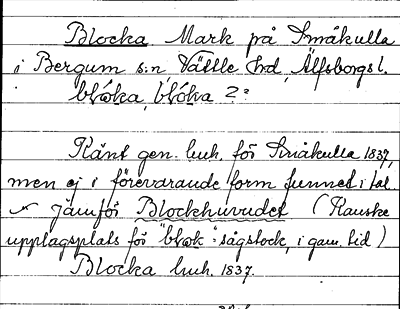 Blocka Mark på Småkulla
i Bergum s:n, Vättle hd, Älfsborgs l.
blòka, blóka 2=
Känt gen. huh. för Småkulla 1837,
men ej i förevarande form funnet i tal.
Jämför Blockhuvudet (Kanske
upplagsplats för "block" = sågstock, i gam. tid)
Blocka huh. 1837.